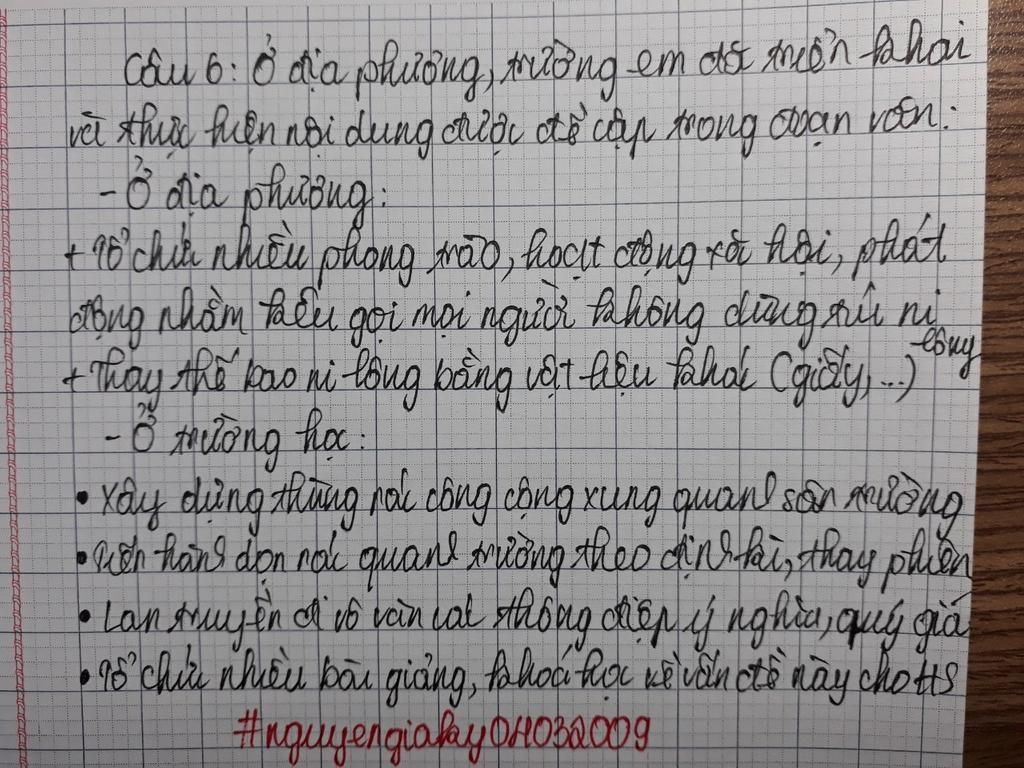 Câu 6: Ở địa phương, trường em đã triển khai
và thực hiện nội dung được đề cập trong đoạn văn:
- Ở địa phương:
+ Tổ chức nhiều phong trào, hoạt động xã hội, phát
động nhằm kêu gọi mọi người không dùng túi ni
lông
+ Thay thế bao ni lông bằng vật liệu khác (giấy,...)
- Ở trường học:
• Xây dựng thùng rác công cộng xung quanh sân trường
• Tiến hành dọn rác quanh trường theo định kì, thay phiên
• Lan truyền đi vô vàn các thông điệp ý nghĩa, quý giá
• Tổ chức nhiều bài giảng, khoá học về vấn đề này cho HS